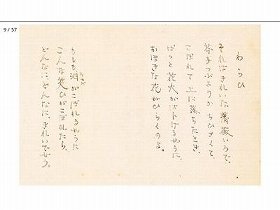 9 / 57
わらひ
それはきれいな薔薇いろで、
芥子つぶよりかちひさくて、
こぼれて土に落ちたとき、
ぱつと花火がはじけるやうに、
おほきな花がひらくのよ。
もしも泪がこぼれるやうに
こんな笑ひがこぼれたら、
どんなに、どんなに、きれいでせう。